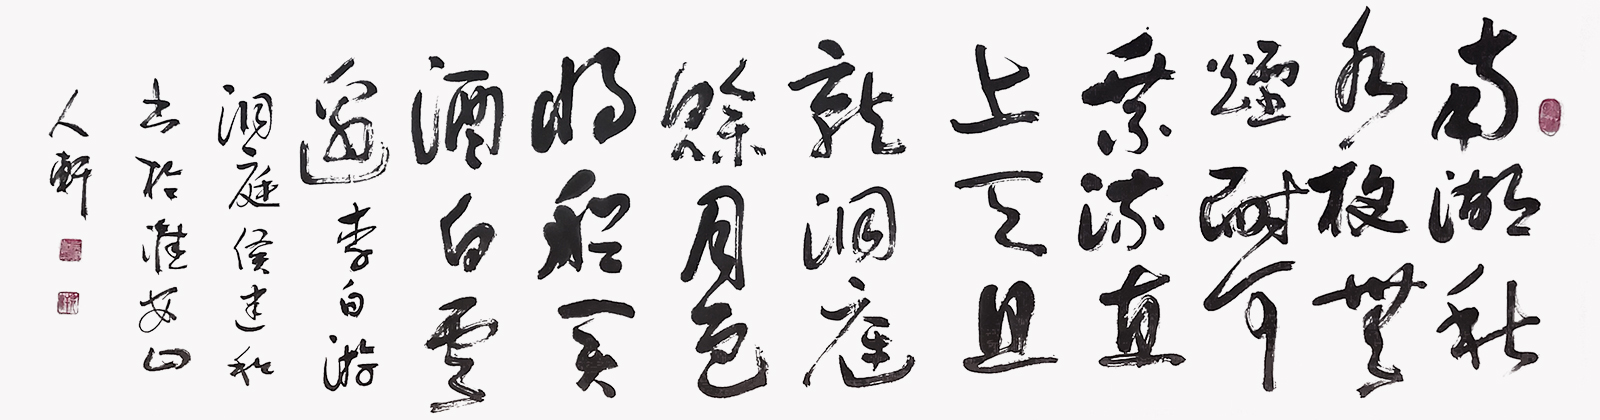 南湖秋
水夜無
煙耐可
乘流直
上天且
就洞庭
賒月色
將船買
酒白雲
邊李白游
洞庭侯建和
书於淮安山
人軒